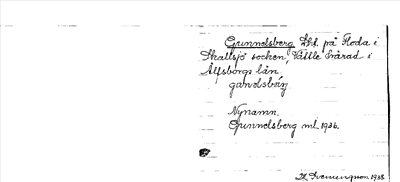 Gunnelsberg Lht. på Floda i
Skallsjö socken, Vättle härad i
Älfsborgs län
Nynamn.
Gunnelsberg ml. 1936.
1938